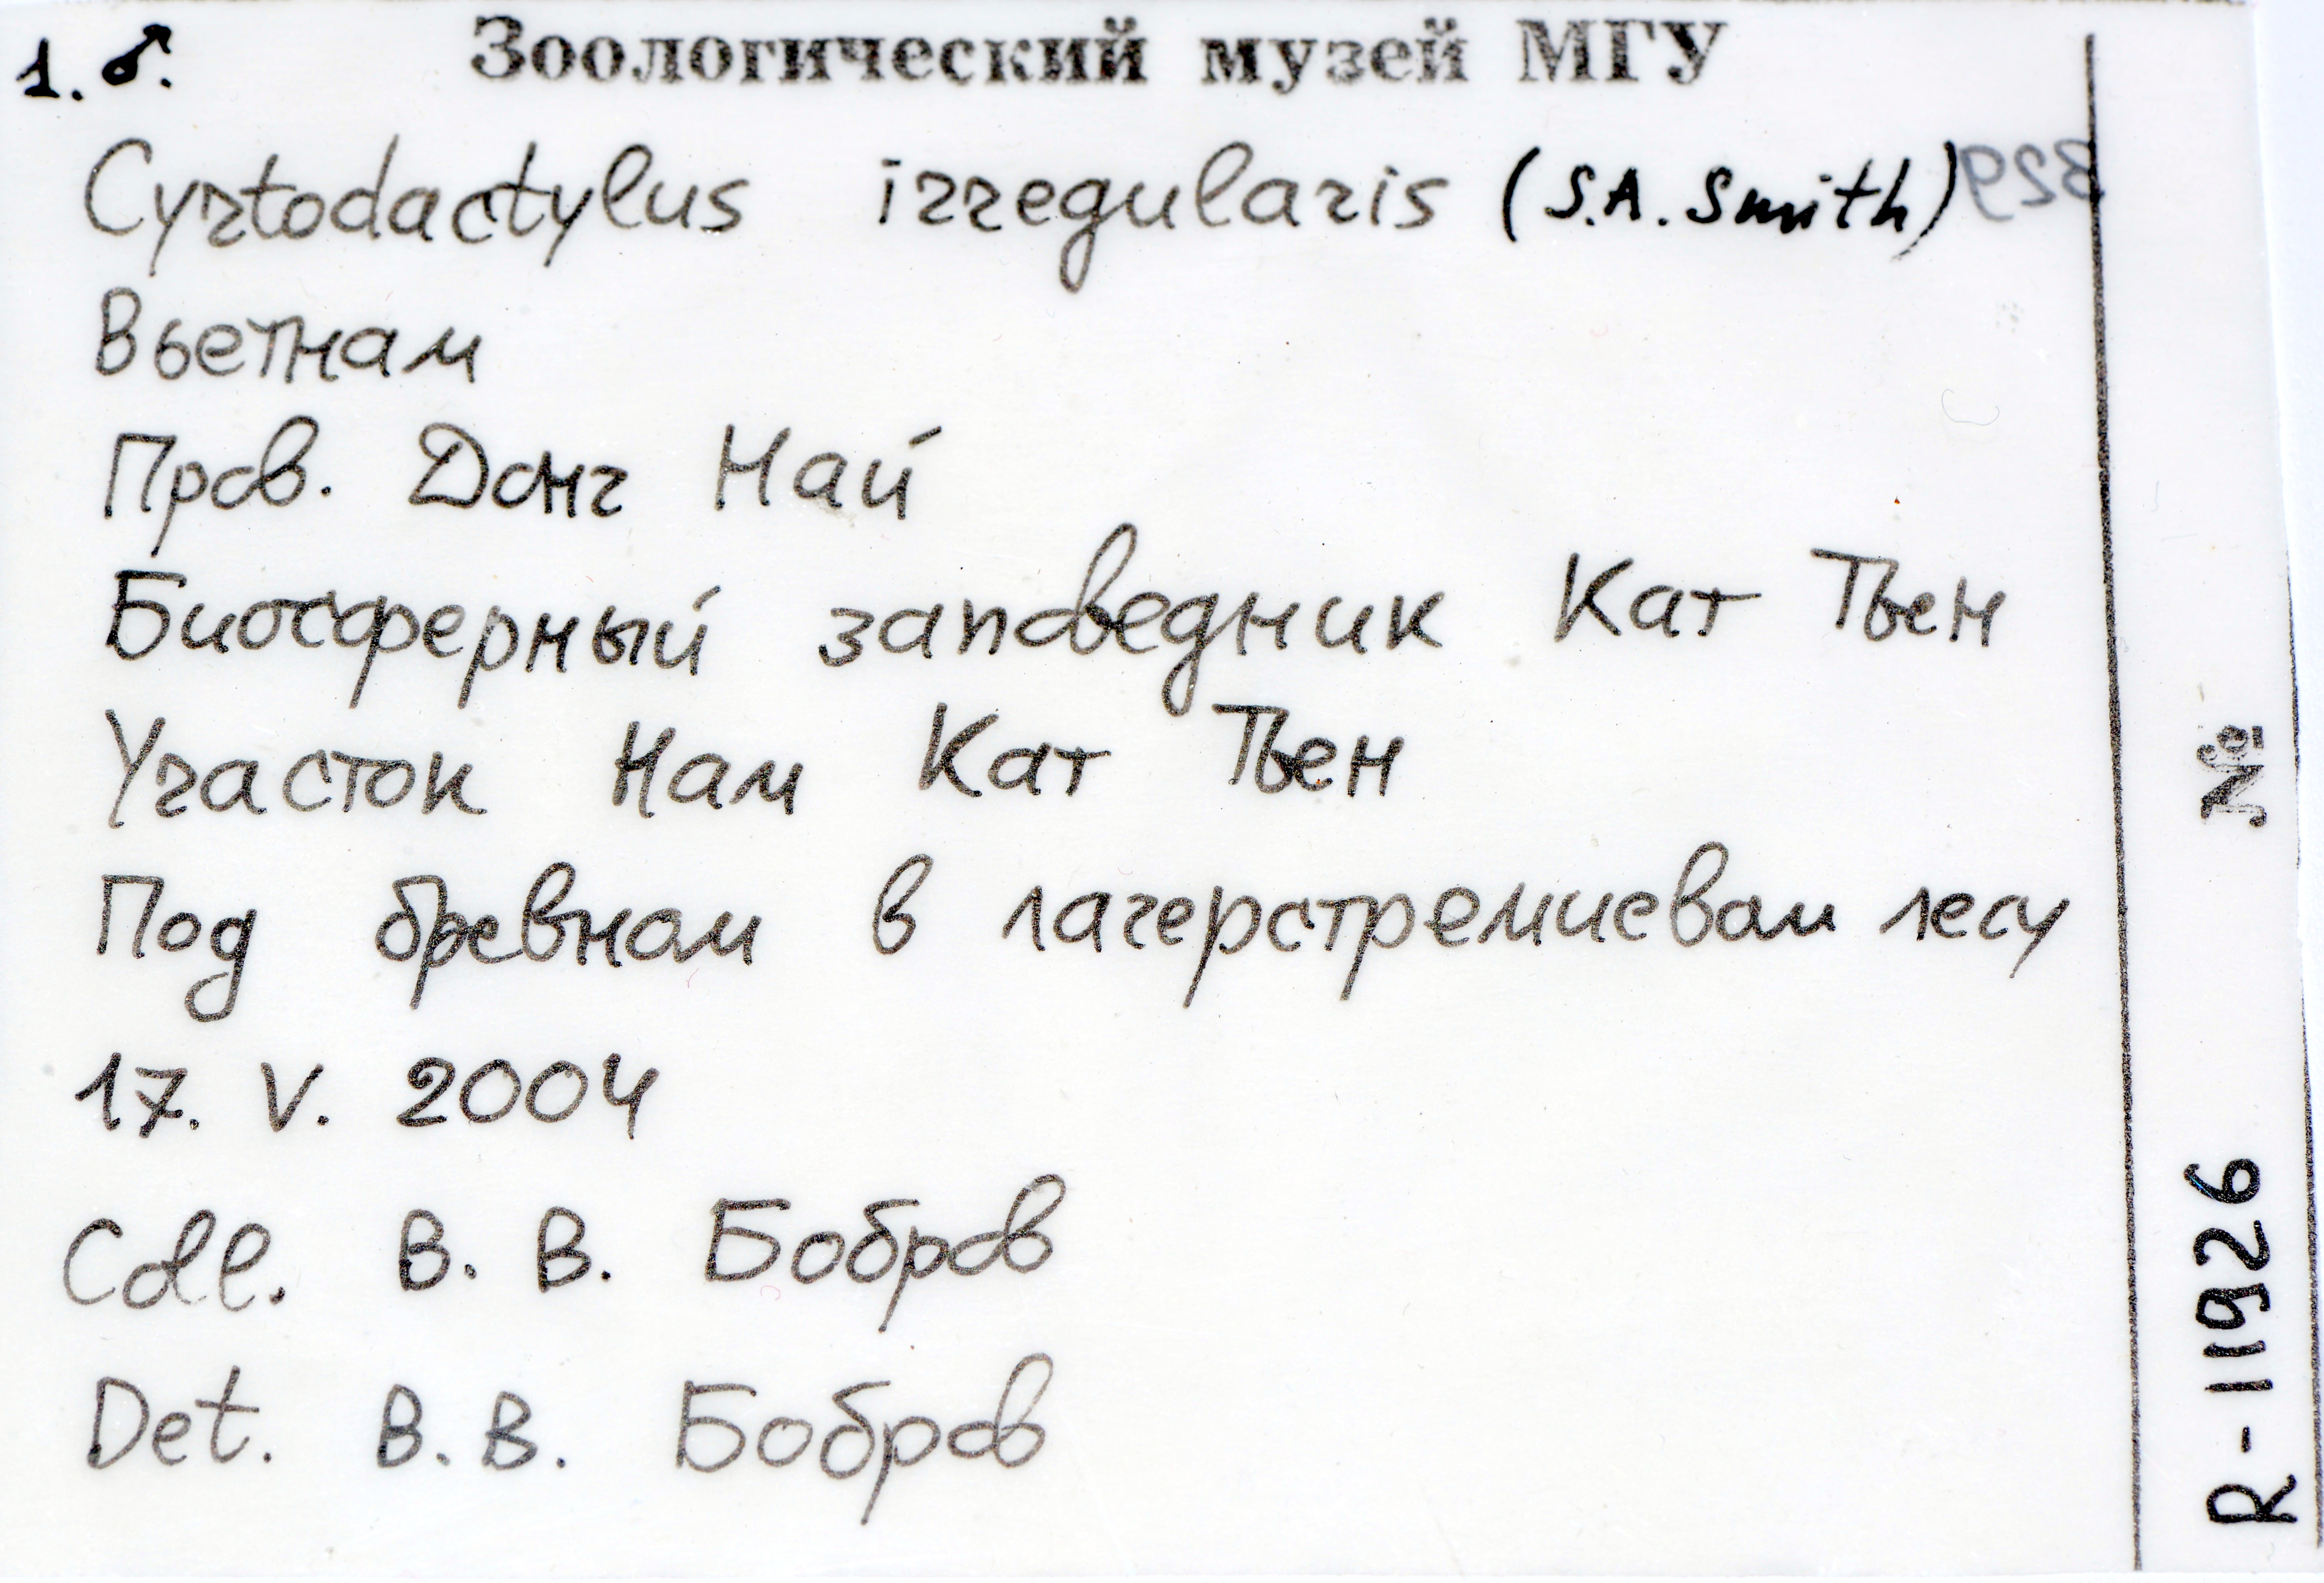 1. ♂. Зоологический музей МГУ
Cyrtodactylus irregularis (S.A. Smith) 329
Вьетнам
Пров. Донг Най
Биосферный заповедник Кат Тьен
Участок Нам Кат Тьен
Под бревном в лагерстремиевом лесу
17. V. 2004
Coll. В. В. Бобров
Det. В. В. Бобров
R-11926 №